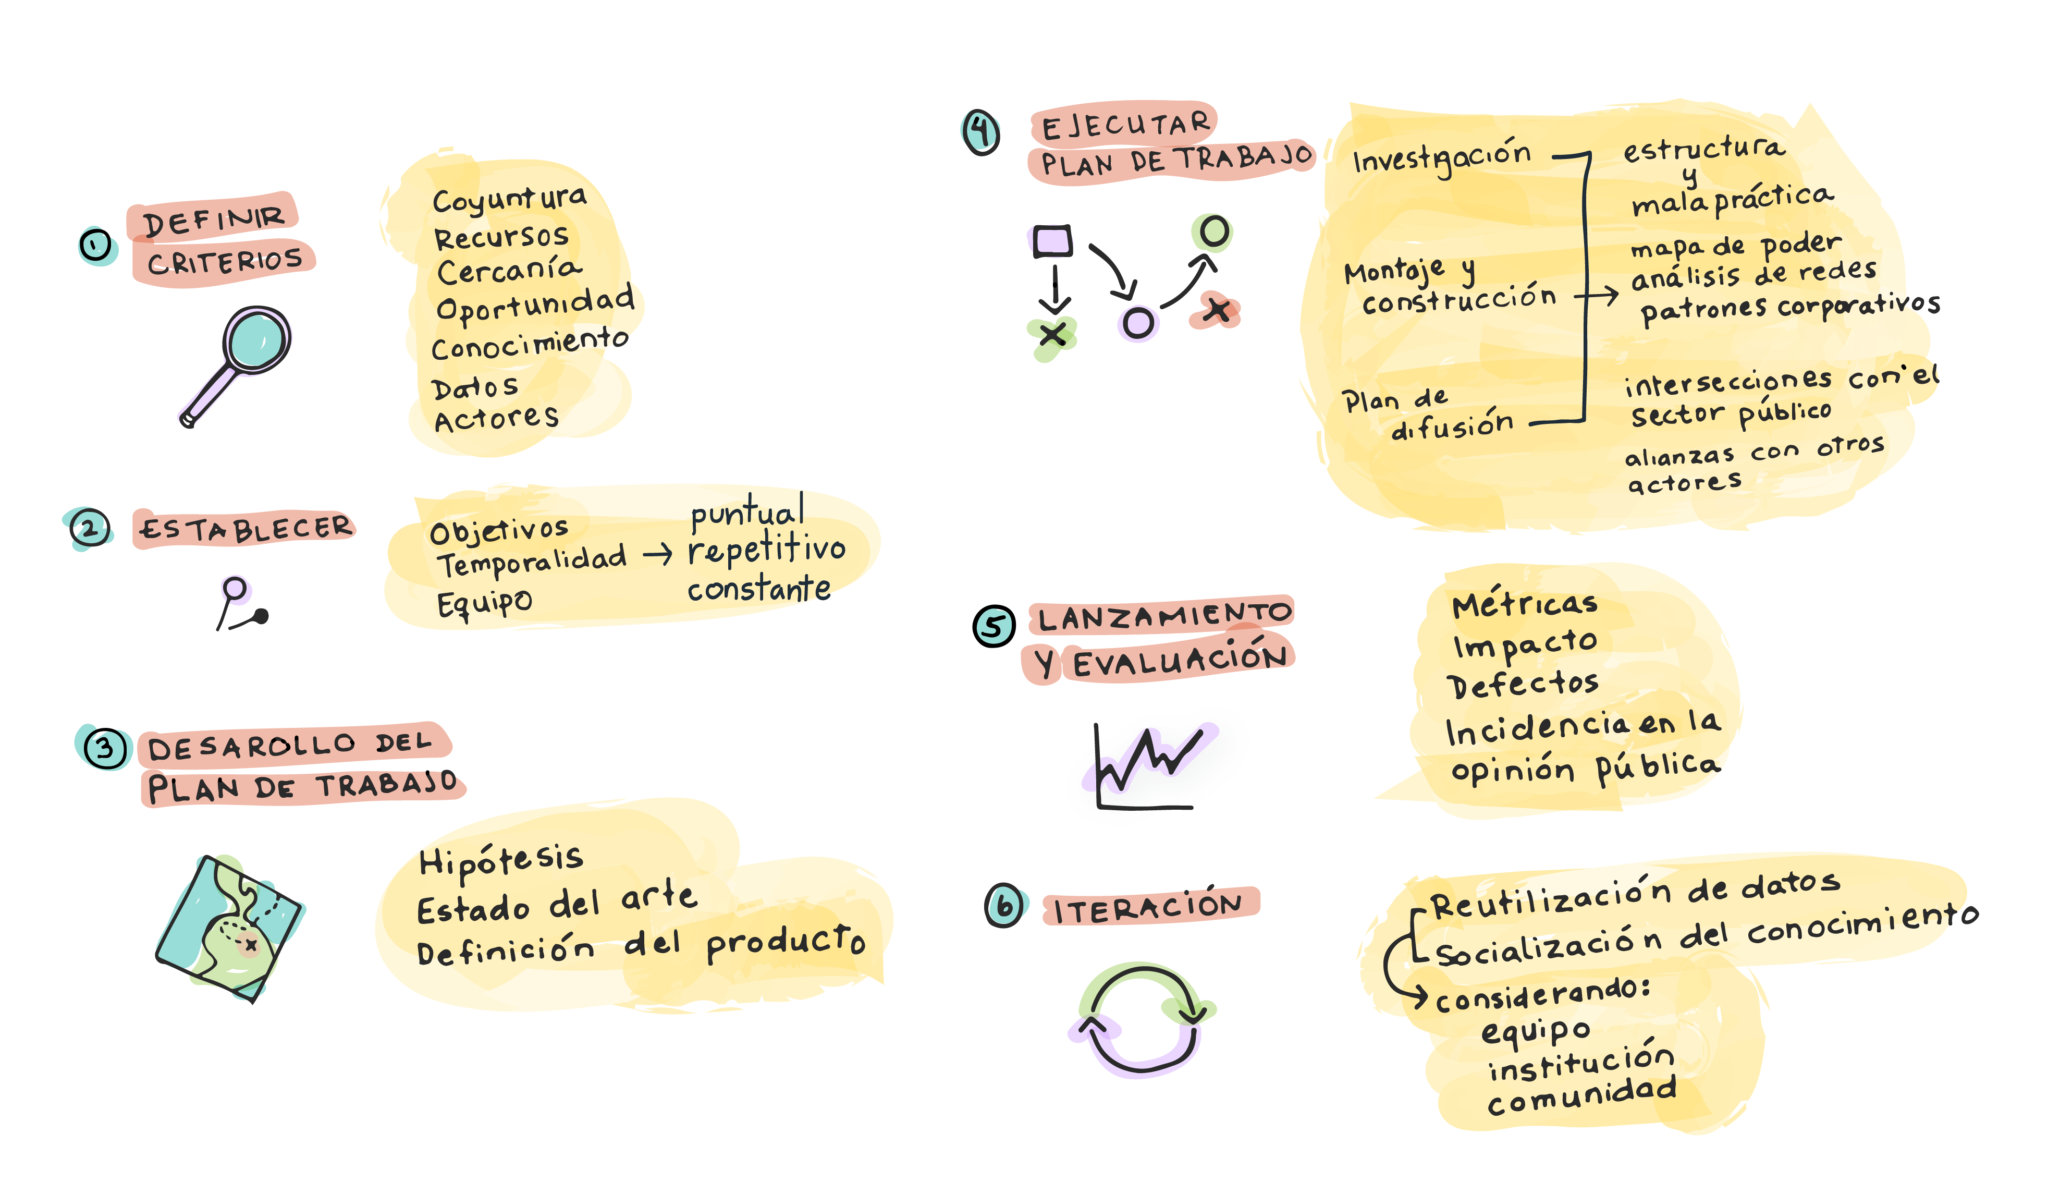 1
DEFINIR
CRITERIOS
Coyuntura
Recursos
Cercanía
Oportunidad
Conocimiento
Datos
Actores
2
ESTABLECER
Objetivos
Temporalidad →
Equipo
puntual
repetitivo
constante
3
DESAROLLO DEL
PLAN DE TRABAJO
Hipótesis
Estado del arte
Definición del producto
4
EJECUTAR
PLAN DE TRABAJO
Investigación
Montaje y
construcción
Plan de
difusión
estructura
y
mala práctica
mapa de poder
análisis de redes
patrones corporativos
intersecciones con el
sector público
alianzas con otros
actores
5
LANZAMIENTO
Y EVALUACIÓN
Métricas
Impacto
Defectos
Incidencia en la
opinión pública
6
ITERACIÓN
Reutilización de datos
Socialización del conocimiento
considerando:
equipo
institución
comunidad